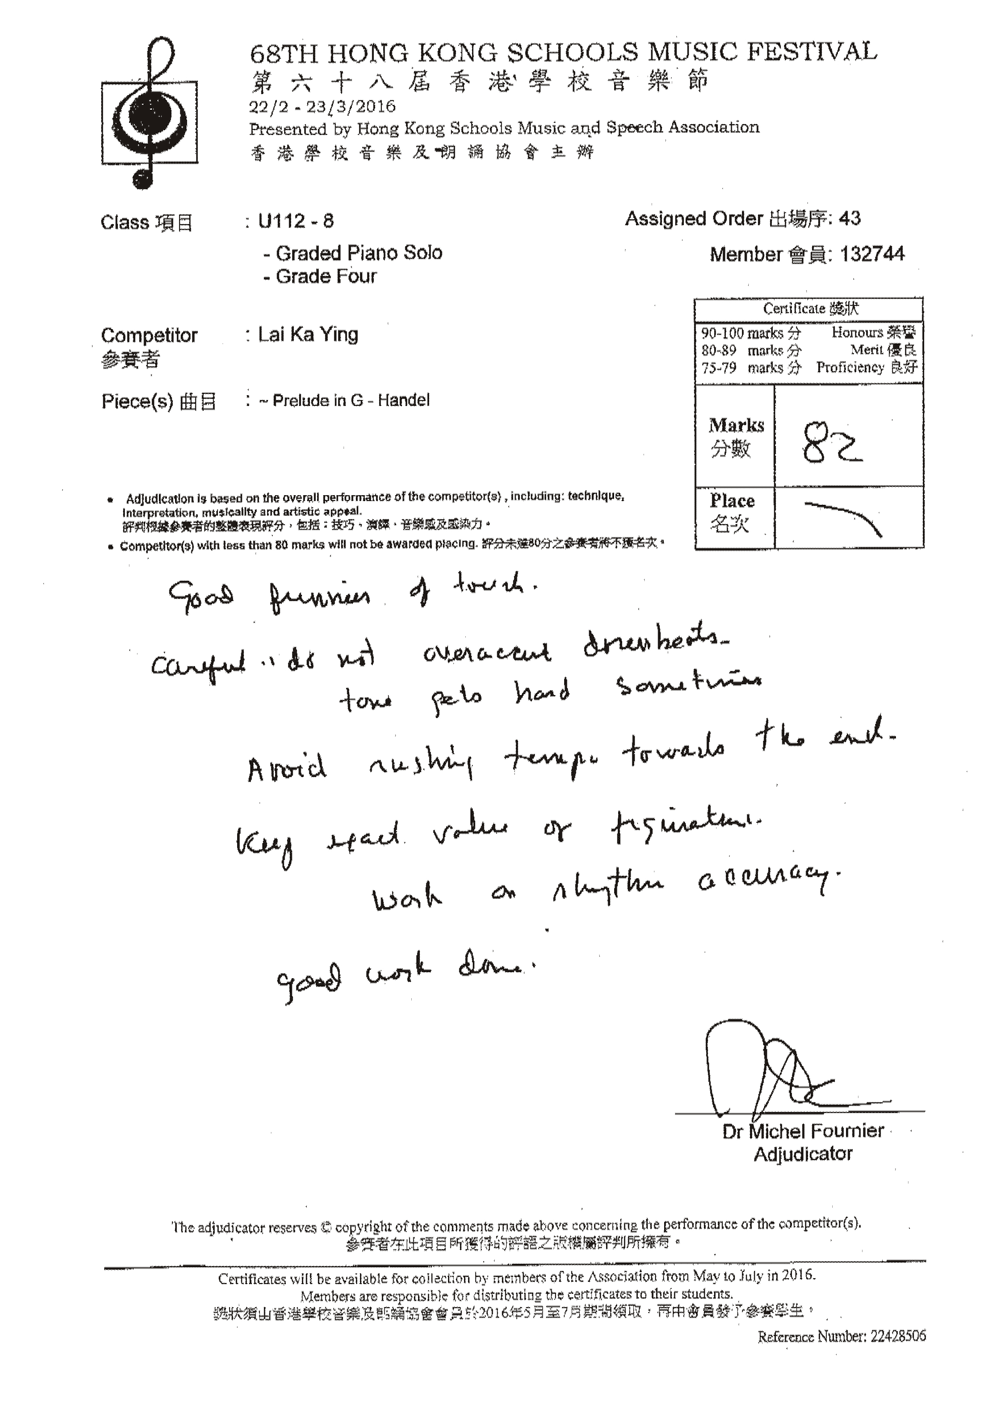 68TH HONG KONG SCHOOLS MUSIC FESTIVAL
第六十八屆香港學校音樂節
22/2 - 23/3/2016
Presented by Hong Kong Schools Music and Speech Association
香港學校音樂及朗誦協會主辦
Class 項目 : U112 - 8
Assigned Order 出場序: 43
- Graded Piano Solo
Member 會員: 132744
- Grade Four
Certificate 獎狀
90-100 marks 分 Honours 榮譽
80-89 marks 分 Merit 優良
75-79 marks 分 Proficiency 良好
Competitor : Lai Ka Ying
參賽者
Piece(s) 曲目 : ~ Prelude in G - Handel
Marks 82
分數
Place
名次
• Adjudication is based on the overall performance of the competitor(s) , including: technique,
interpretation, musicality and artistic appeal.
評判根據參賽者的整體表現評分，包括：技巧、演繹、音樂感及感染力。
• Competitor(s) with less than 80 marks will not be awarded placing. 評分未達80分之參賽者將不獲名次。
Good firmness of touch.
careful .. do not overaccent downbeats -
tone gets hard sometimes
Avoid rushing tempo towards the end.
Keep exact value of figurations.
Work on rhythm accuracy.
good work done.
Dr Michel Fournier
Adjudicator
The adjudicator reserves © copyright of the comments made above concerning the performance of the competitor(s).
參賽者在此項目所獲得的評語之版權屬評判所擁有。
Certificates will be available for collection by members of the Association from May to July in 2016.
Members are responsible for distributing the certificates to their students.
獎狀須由香港學校音樂及朗誦協會會員於2016年5月至7月期間領取，再由會員發予參賽學生。
Reference Number: 22428506